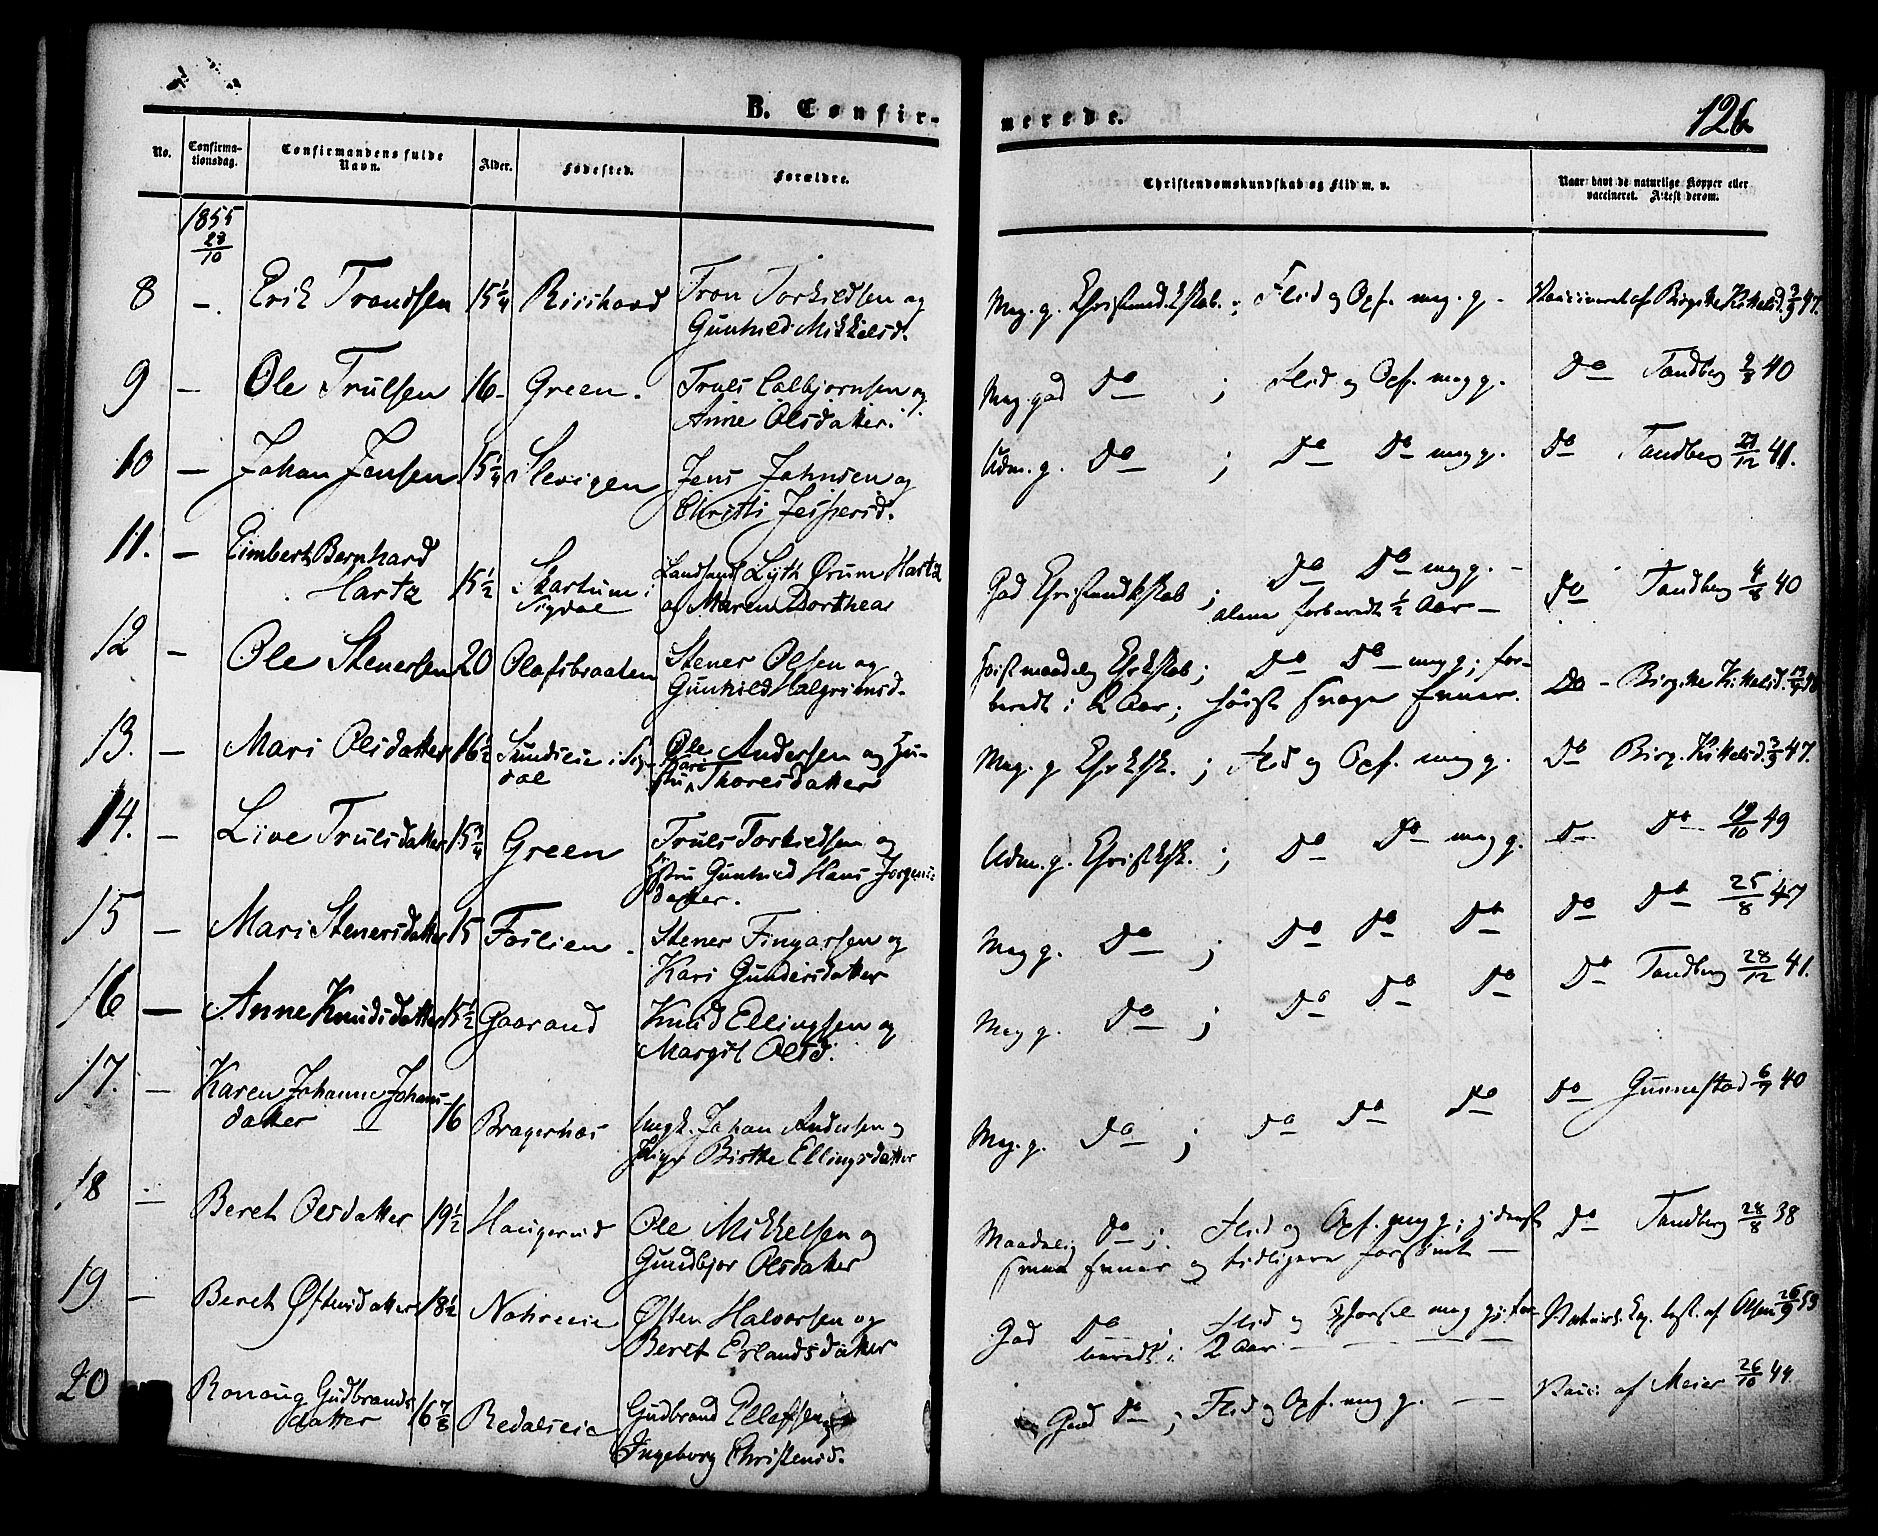 B. Confirmerede.
126
No.
Confirmationsdag.
Confirmandens fulde Navn.
Alder.
Fødested.
Forældre.
Christendomskundskab og Flid m. v.
Naar havt de naturlige Kopper eller vaccineret. Attest derom.
1855
28/10
8 – Erik Trondsen 15 1/4 Tron Torkildsen og
Gunhild Mikkelsd.
Meg. g. ; Flid og Opf. meg. g. Birgithe Kittelsd. 47.
9 – Ole Trulsen 16 – Green. Truls og
Anne Olsdatter.
Meg. god Do ; Flid og Opf. meg g. Do Tandberg 40
10 – Johan Jensen 15 1/4 Slevigen Jens Johnsen og
Christi Jespersd.
Udm. g. Do ; Do Do meg g. Do Tandberg 41.
11. – Bernhard
Hartz 15 1/2 Skartum i
Sigdal
Lyth Ørum Hartz
og Maren Dorthea
God ; Do Do meg g. –
alene forberedt 1/2 Aar – Do Tandberg 4/8 40
12 – Ole Stenersen 20 Olafsbraaten Stener Olsen og
Gunhild Halgrimsd.
; Do Do – meg g; for-
beredt i 2 Aar; høist svage Evner. Do – Birgithe Kittelsd.
13. – Mari Olsdatter 16 1/2 i Sig-
dal
Ole Andersen og Hu-
stru Kari Thoresdatter
Meg. g. ; Flid og Opf. meg g. Do Birg. Kittelsd. 47.
14. – Live Trulsdatter 15 3/4 Green Truls Torkildsen og
Hstru Gunhild Hans Jorgens
datter.
Udm. g. ; Do Do meg g. Do Do 19/10 49
15 – Mari Stenersdatter 15 Foslien. Stener Fingarsen og
Kari Gundersdatter
Meg g. Do ; Do Do Do Do Do 25/8 47
16 – Anne Knudsdatter 15 1/2 Gaarand Knud Ellingsen og
Margit Olsd.
Meg g. Do ; Do Do Do Do Tandberg 28/12 41.
17. – Karen Johanne Johans-
datter 16 Bragernæs Ungk. Johan Andersen og
Pige Birthe Ellingsdatter
Meg. g. Do ; Do Do Do Do Gunnestad 40
18 – Beret Olsdatter 19 1/2 Haugerud Ole Mikkelsen og
Gundbjor Olsdatter
Maadelig Do ; Flid og Opf. meg g;
Evner og tidligere forsømt – Do Tandberg 28/8 38
19 – Beret Østensdatter 18 1/2 Østen Halvorsen og
Beret Erlandsdatter
God Do ; Flid og Opførsel meg g; for-
beredt i 2 Aar – af Olsen 53
20 Ronnoug Gudbrands
datter 16 7/8 Redalseie Gudbrand Ellefsen og
Ingeborg Christensd.
God Do ; Flid og Opf. meg g. – Vacci af Meier 26/10 44